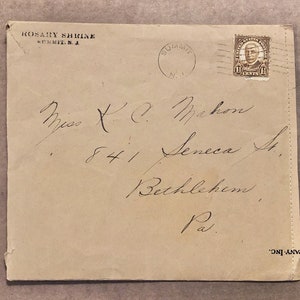 ROSARY SHRINE
SUMMIT, N. J.
SUMMIT
N.J.
1½ CENTS 1½
Miss K C. Mahon
841 Seneca St.
Bethlehem
Pa.
PANY INC.